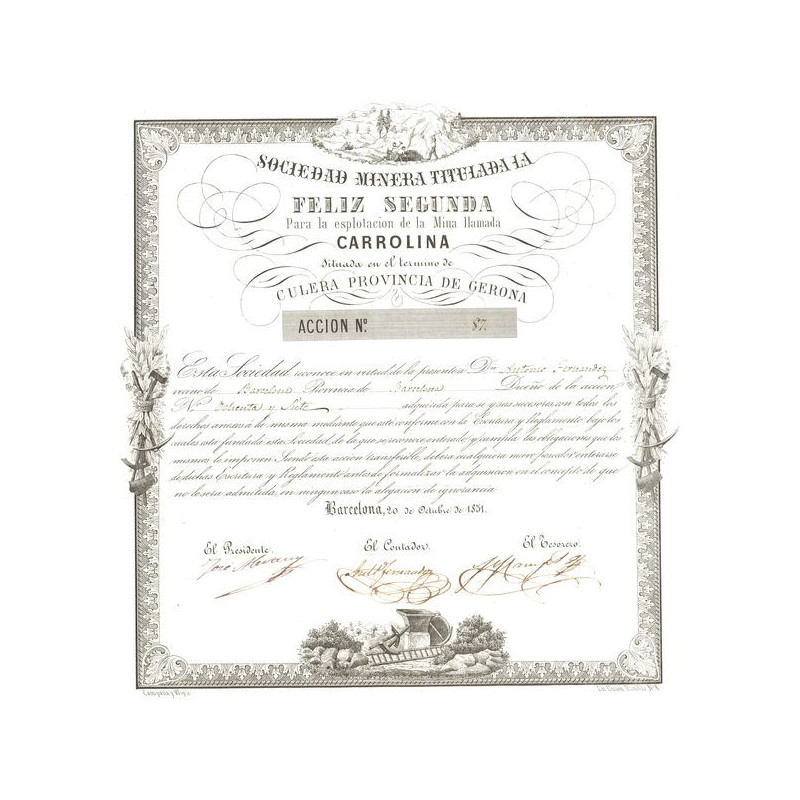 SOCIEDAD MINERA TITULADA LA
FELIZ SEGUNDA
Para la esplotacion de la Mina llamada
CARROLINA
Situada en el termino de
CULERA PROVINCIA DE GERONA
ACCION Nº. 87.
Esta Sociedad reconoce en virtud de la presente á Dn. Antonio Fernandez
vecino de Barcelona Provincia de Barcelona Dueño de la accion
Nº. Ochenta y Siete adquirida para se y sus sucesores, con todos los
derechos anexos á la misma mediante que esté conforme con la Escritura y Reglamento bajo los
cuales está fundada esta Sociedad, de la que se reconoce enterado y cumpla las obligaciones que los
mismos le imponen. Siendo esta accion transferible, deberá cualquiera nuevo poseedor enterarse
de dichas Escritura y Reglamento antes de formalizar la adquisicion en el concepto de que
no le será admitida, en ningun caso la alegacion de ignorancia
Barcelona, 20 de Octubre de 1851.
El Presidente. El Contador. El Tesorero.
José Antº Fernandez